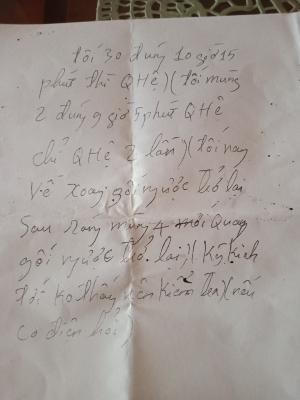 tối 30 đúng 10 giờ 15
phút thì QHệ)(tối mung
2 đung 9 giờ 5 phút QHệ
chỉ QHệ 2 lần)(tối nay
Về xoay gối ngược trở lại
Sau sáng mùng 4 mới Quay
gối ngược trở lại)(
tới ko thấy nên kiểm tra)(nếu
có điên hỏi)